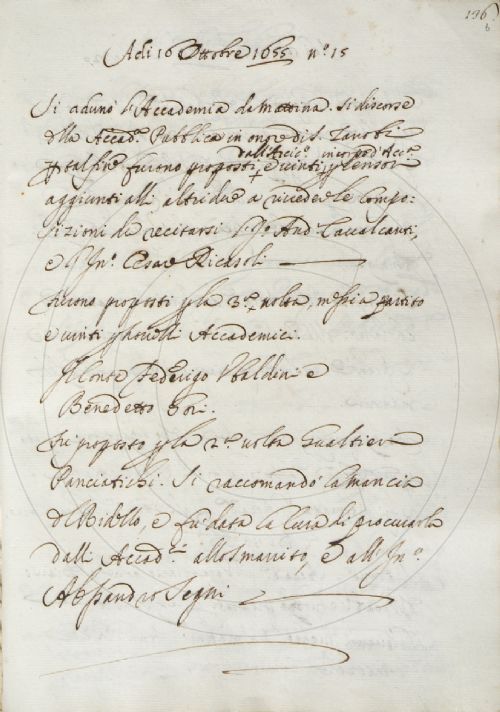 136
6
Adi 16 Ottobre 1655 n.º 15
Si adunò l'Accademia da mattina. Si discorse
della Accad.ª Pubblica in onore di S. Zanobi
dall'Arcic.º in corpo d'Acc.ª
p tal fine furono proposti, + e vinti p Censori
aggiunti alli altri due a rivedere le compo:
sizioni da recitarsi l' And.ª Cavalcanti,
e l' In.º Cesare Ricasoli
Furono proposti p la 3.ª volta, messi a partito
e vinti p novelli Accademici.
Il Conte Federigo Ubaldini e
Benedetto Gori.
Fu proposto p la 2.ª volta Gualtieri
Panciatichi. Si raccomandò la mancia
del Bidello, e fu data la Cura di procurarla
dalli Accad.ci allo Smarrito, e all' In.º
Alessandro Segni